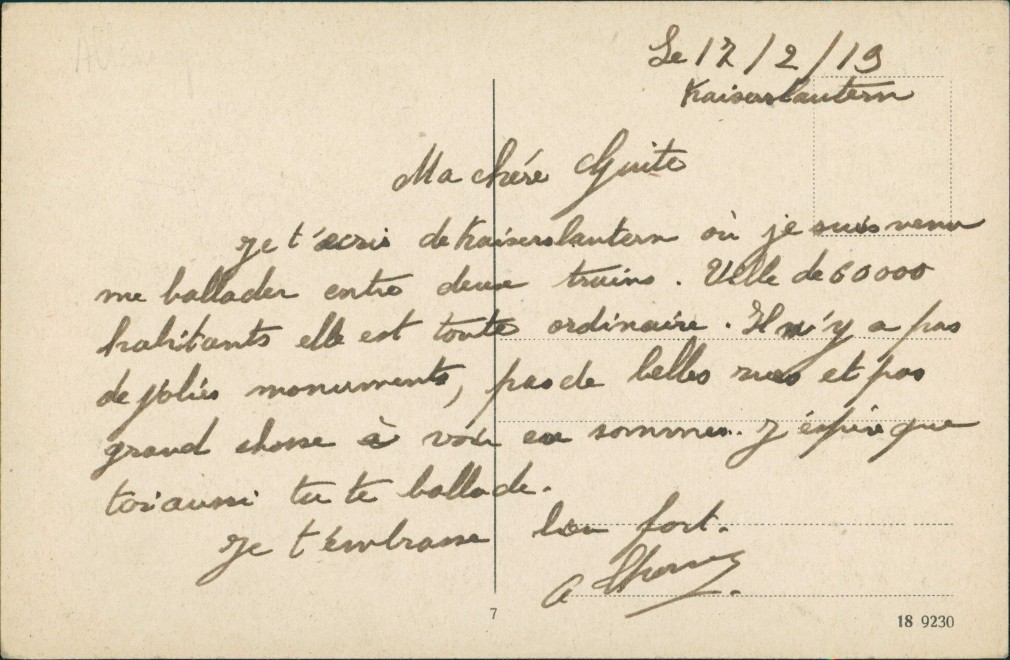 Le 17/2/19
Kaiserslautern
Ma chére Guite
Je t'écris de Kaiserslautern où je suis venu
me ballader entre deux trains. Ville de 60000
habitants elle est toute ordinaire. Il n'y a pas
de jolies monuments, pas de belles rues et pas
grand chose à voir en somme. J'éspère que
toi aussi tu te ballade.
Je t'embrasse bien fort.
7
18 9230